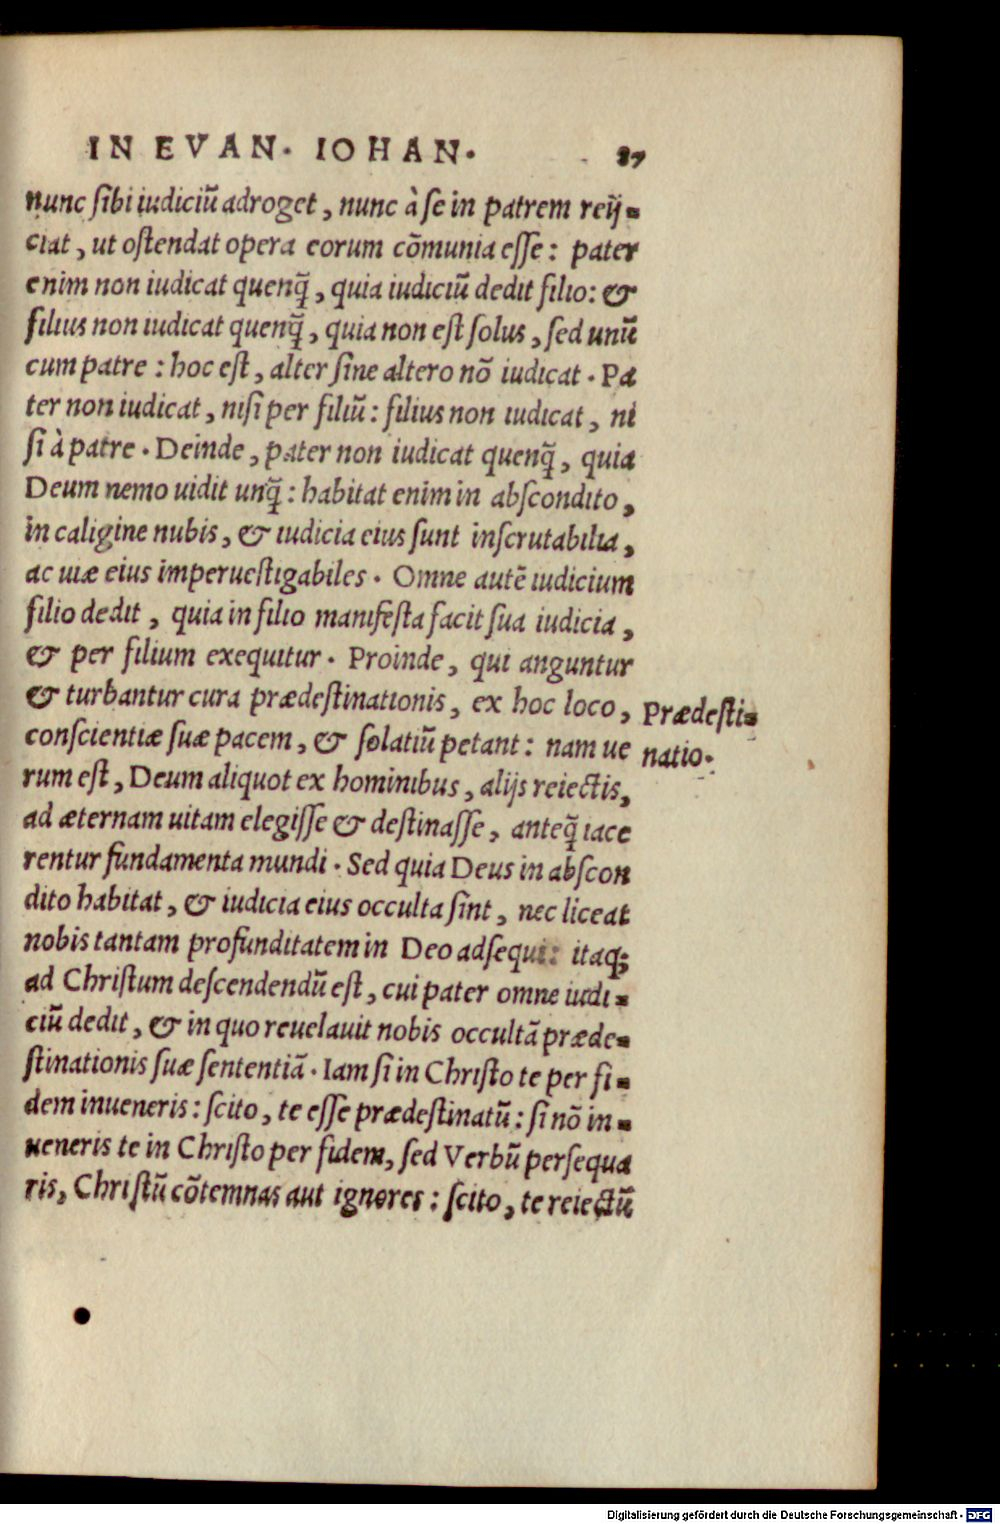 IN EVAN. IOHAN. 87
nunc ſibi iudiciū adroget, nunc à ſe in patrem reij-
ciat, ut oſtendat opera eorum cōmunia eſſe: pater
enim non iudicat quenq̃, quia iudiciū dedit filio: &
filius non iudicat quenq̃, quia non eſt ſolus, ſed unū
cum patre: hoc eſt, alter ſine altero nō iudicat. Pa
ter non iudicat, niſi per filiū: filius non iudicat, ni
ſi à patre. Deinde, pater non iudicat quenq̃, quia
Deum nemo uidit unq̃: habitat enim in abſcondito,
in caligine nubis, & iudicia eius ſunt inſcrutabilia,
ac uiæ eius imperueſtigabiles. Omne autē iudicium
filio dedit, quia in filio manifeſta facit ſua iudicia,
& per filium exequitur. Proinde, qui anguntur
& turbantur cura prædeſtinationis, ex hoc loco,
Prædeſti-
natio.
conſcientiæ ſuæ pacem, & ſolatiū petant: nam ue
rum eſt, Deum aliquot ex hominibus, alijs reiectis,
ad æternam uitam elegiſſe & deſtinaſſe, anteq̃ iace
rentur fundamenta mundi. Sed quia Deus in abſcon
dito habitat, & iudicia eius occulta ſint, nec liceat
nobis tantam profunditatem in Deo adſequi: itaq;
ad Chriſtum deſcendendū eſt, cui pater omne iudi-
ciū dedit, & in quo reuelauit nobis occultā præde-
ſtinationis ſuæ ſententiā. Iam ſi in Chriſto te per fi-
dem inueneris: ſcito, te eſſe prædeſtinatū: ſi nō in-
ueneris te in Chriſto per fidem, ſed Verbū perſequa
ris, Chriſtū cōtemnas aut ignores: ſcito, te reiectū
Digitalisierung gefördert durch die Deutsche Forschungsgemeinschaft - DFG